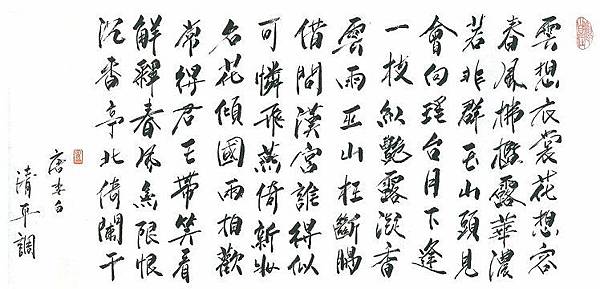 雲想衣裳花想容
春風拂檻露華濃
若非群玉山頭見
會向瑤台月下逢
一枝紅艷露凝香
雲雨巫山枉斷腸
借問漢宮誰得似
可憐飛燕倚新妝
名花傾國兩相歡
常得君王帶笑看
解釋春風無限恨
沉香亭北倚闌干
唐李白
清平調